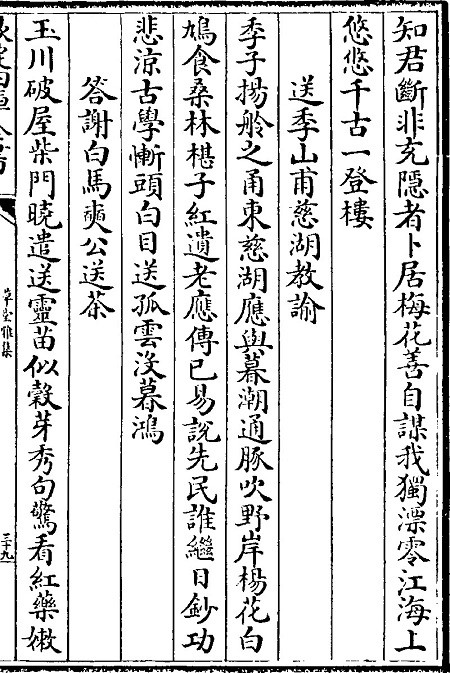 知君斷非充隱者卜居梅花善自謀我獨漂零江海上
悠悠千古一登樓
送季山甫慈湖教諭
季子揚舲之甬東慈湖應與暮潮通豚吹野岸楊花白
鳩食桑林椹子紅遺老應傳已易說先民誰繼日鈔功
悲涼古學慚頭白目送孤雲沒暮鴻
答謝白馬奭公送茶
玉川破屋柴門曉遣送靈苗似榖芽秀句驚看紅藥嫩
草堂雅集
三十九